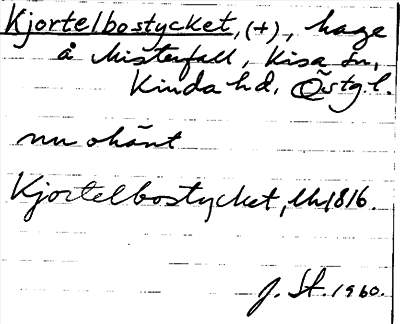 Kjortelbostycket, (+), hage
å Misterfall, Kisa sn,
Kinda hd, Östg.l.
nu okänt
Kjortelbostycket, Uh 1816.
J. St. 1960.